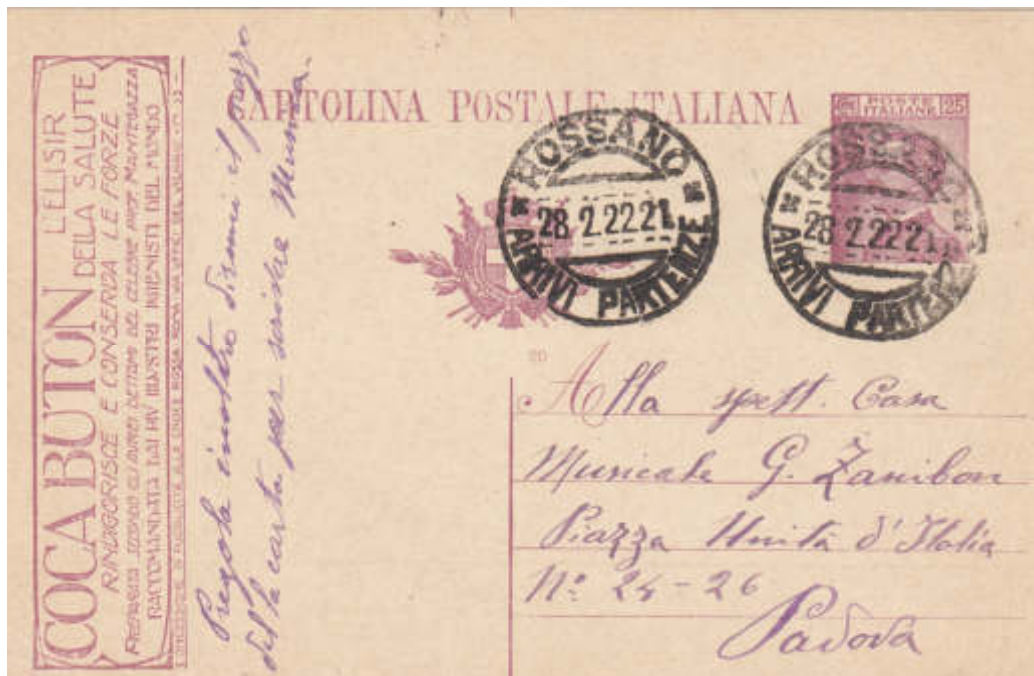 COCA BUTON L'ELISIR
DELLA SALUTE
RINVIGORISCE E CONSERVA LE FORZE
PREPARATA SECONDO GLI AUREI DETTAMI DEL CELEBRE PROF. MANTEGAZZA
RACCOMANDATA DAI PIU' ILLUSTRI IGIENISTI DEL MONDO
Pregola inoltre dirmi il prezzo
della carta per scrivere Musica.
CARTOLINA POSTALE ITALIANA
POSTE
ITALIANE 25
ROSSANO
28 2.22 21
ARRIVI PARTENZE
ROSSANO
28 2.22 21
ARRIVI PARTENZE
20
Alla spett. Casa
Musicale G. Zanibon
Piazza Unità d'Italia
No. 24-26
Padova